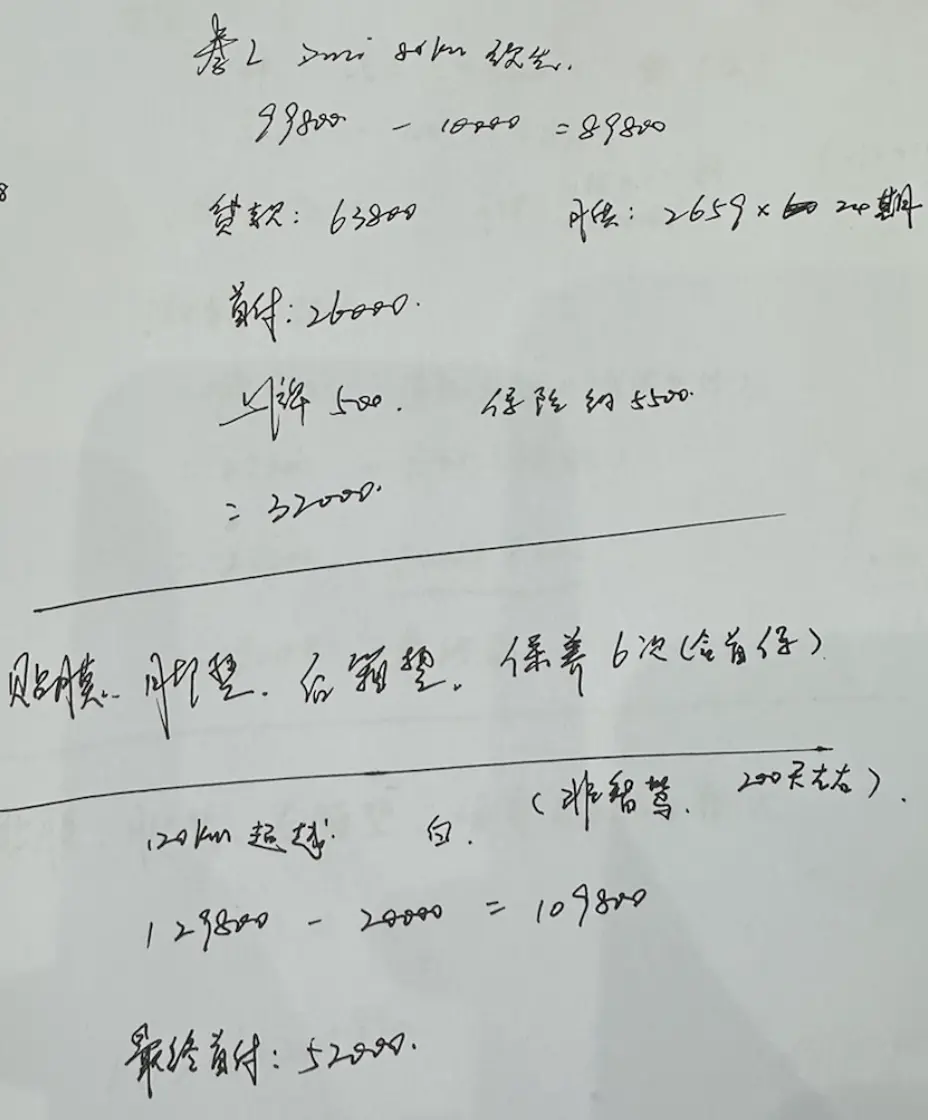 秦L Dmi 80km 领先.
99800 - 10000 = 89800
8
贷款: 63800 月供: 2659 × 24期
首付: 26000.
上牌 500. 保险约 5500.
= 32000.
贴膜. 脚垫. 后箱垫. 保养 6次 (含首保)
120km 超越. 白. (非智驾. 200天左右).
129800 - 20000 = 109800
最终首付: 52000.